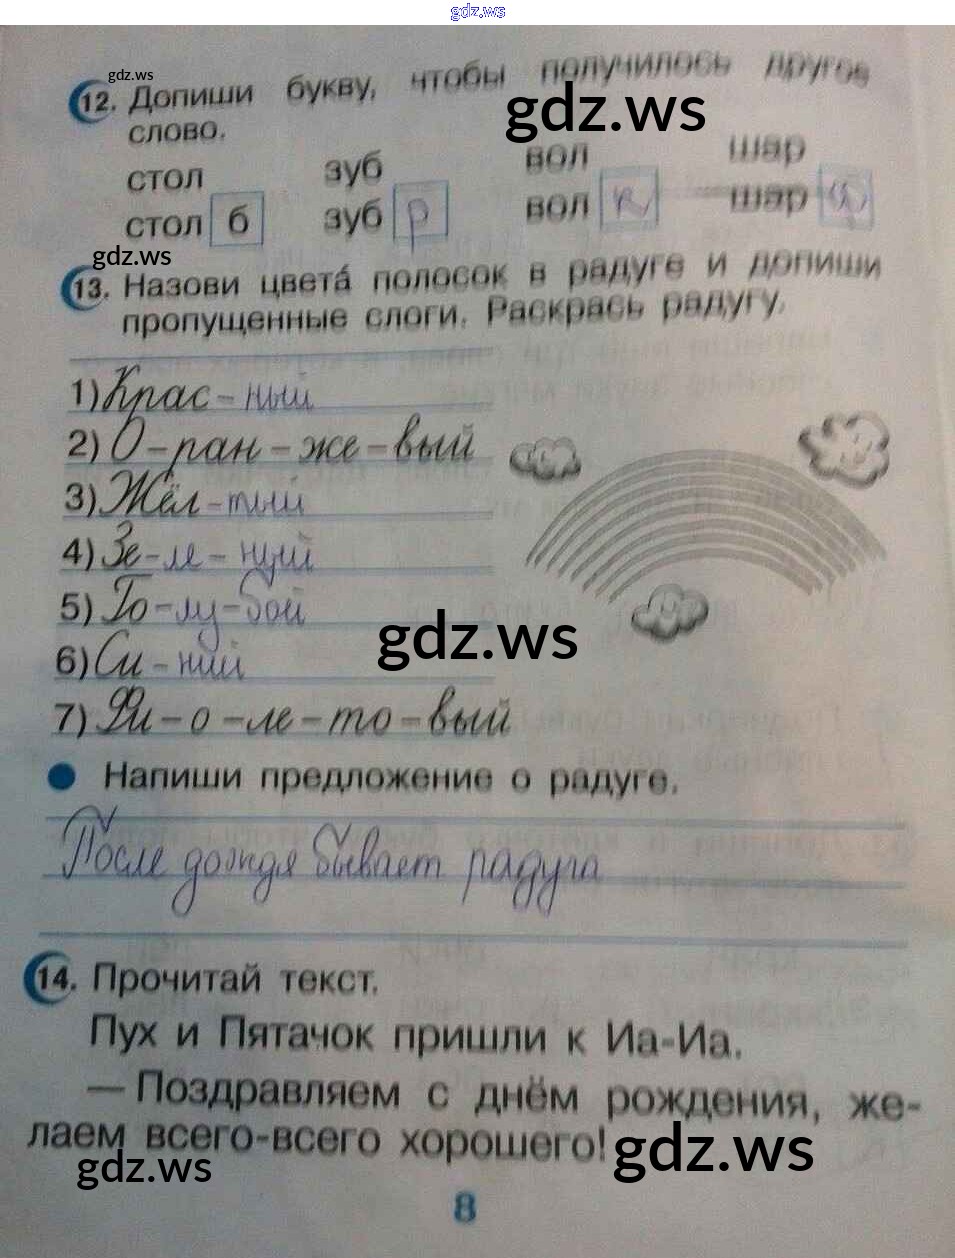 gdz.ws
gdz.ws
12. Допиши букву, чтобы получилось другое
слово.
gdz.ws
стол зуб вол шар
стол б зуб р вол к шар ф
gdz.ws
13. Назови цвета́ полосок в радуге и допиши
пропущенные слоги. Раскрась радугу.
1) Крас - ный
2) О - ран - же - вый
3) Жёл - тый
4) Зе - ле - ный
5) Го - лу - бой
gdz.ws
6) Си - ний
7) Фи - о - ле - то - вый
Напиши предложение о радуге.
После дождя бывает радуга
14. Прочитай текст.
Пух и Пятачок пришли к Иа-Иа.
— Поздравляем с днём рождения, же-
лаем всего-всего хорошего!
gdz.ws
gdz.ws
8